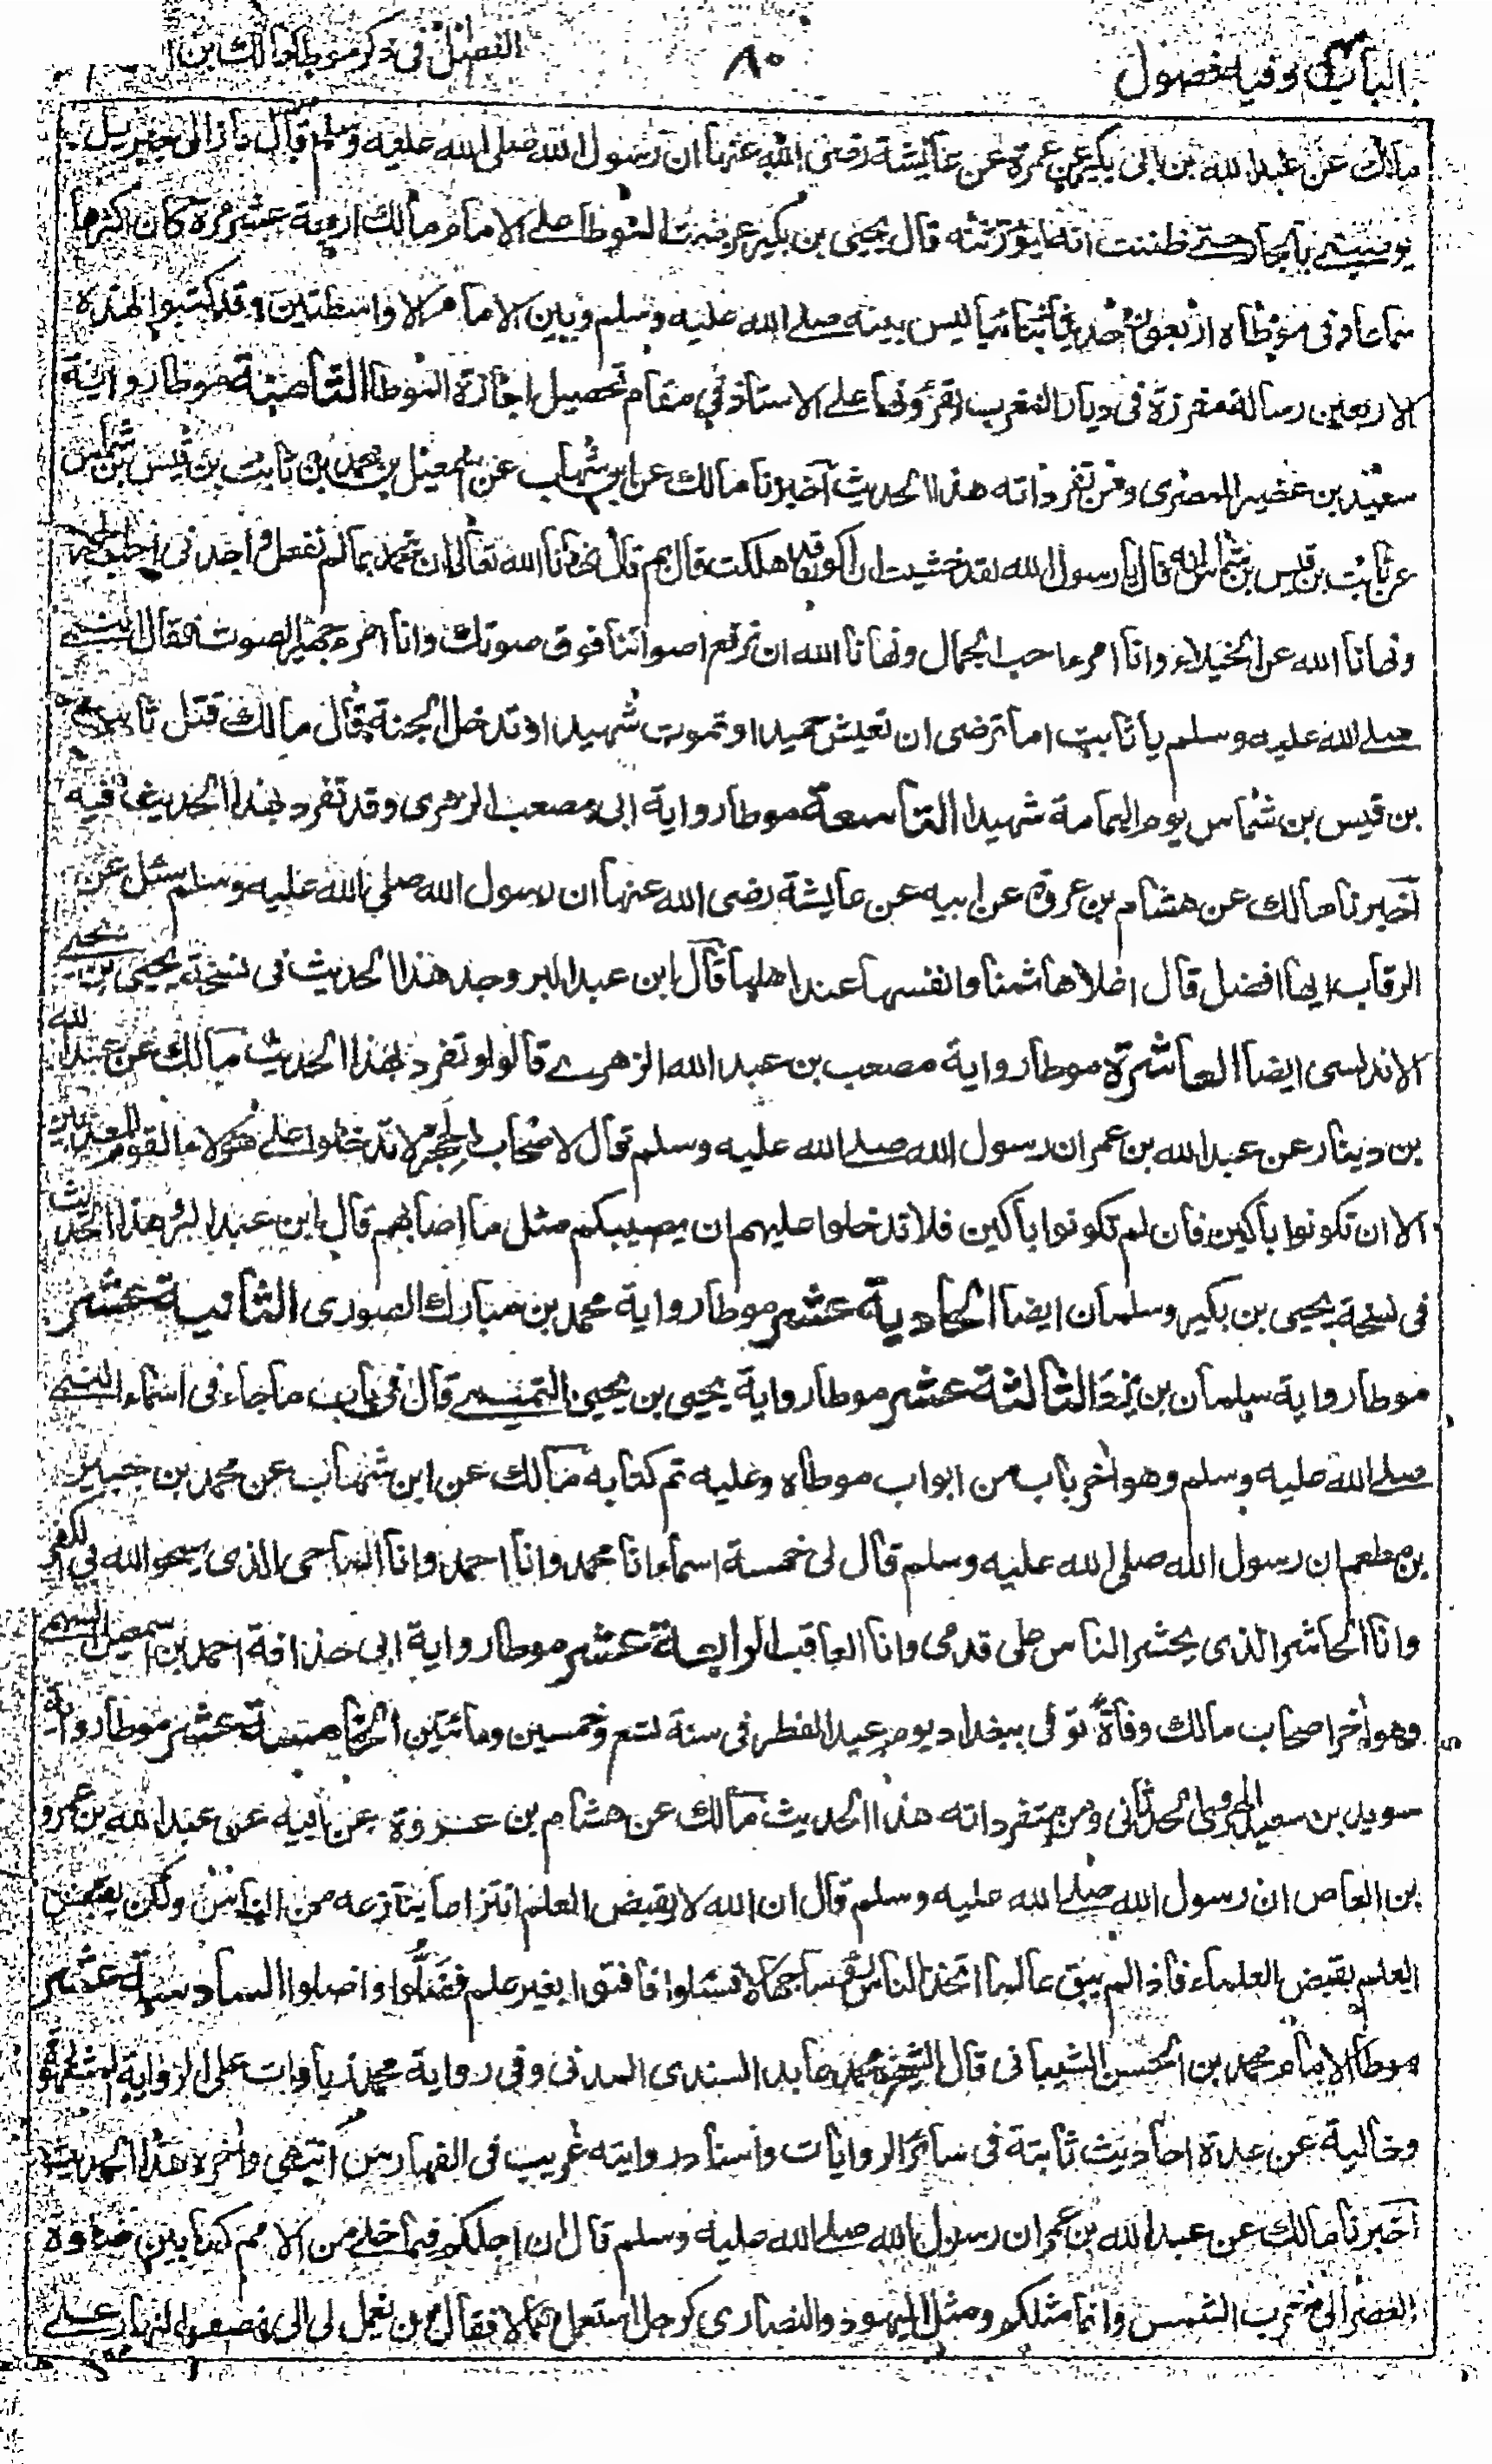 الباب وفيه فصول
٨٠
الفصل في ذكر موطا مالك بن
مالك عن عبد الله بن ابى بكر عن عمرة عن عايشة رضى الله عنها ان رسول الله صلى الله عليه وسلم قال مازال جبريل
يوصينى بالجار حتى ظننت انه ليورثنه قال يحيى بن بكير عرضت الموطا على الامام مالك اربعة عشر مرة كان اكثرها
سماعا وفى موطاه اربعون حديثا ثنائيا ليس بينه صلى الله عليه وسلم وبين الامام الا واسطتين وقد كتبوا لهذه
الاربعين رسالة مفرزة فى ديار المغرب يقرؤنها على الاستاذ في مقام تحصيل اجازة الموطا الثامنة موطا رواية
سعيد بن عفير المصرى ومن تفرداته هذا الحديث اخبرنا مالك عن ابن شهاب عن اسمعيل بن محمد بن ثابت بن قيس بن شماس
عن ثابت بن قيس بن شماس انه قال يا رسول الله لقد خشيت ان اكون قد هلكت قال بم قال نهانا الله تعالى ان نحمد بما لم نفعل واجدنى احب الحمد
ونهانا الله عن الخيلاء وانا امرء احب الجمال ونهانا الله ان نرفع اصواتنا فوق صوتك وانا امرء جهير الصوت فقال النبى
صلى الله عليه وسلم يا ثابت اما ترضى ان تعيش حميدا وتموت شهيدا وتدخل الجنة قال مالك قتل ثابت
بن قيس بن شماس يوم اليمامة شهيدا التاسعة موطا رواية ابى مصعب الزهرى وقد تفرد بهذا الحديث فيه
اخبرنا مالك عن هشام بن عروة عن ابيه عن عايشة رضى الله عنها ان رسول الله صلى الله عليه وسلم سئل عن
الرقاب ايها افضل قال اغلاها ثمنا وانفسها عند اهلها قال ابن عبد البر وجد هذا الحديث فى نسخة يحيى بن يحيى
الاندلسى ايضا العاشرة موطا رواية مصعب بن عبد الله الزهرى قالوا وتفرد بهذا الحديث مالك عن عبد الله
بن دينار عن عبد الله بن عمر ان رسول الله صلى الله عليه وسلم قال لاصحاب الحجر لا تدخلوا على هؤلاء القوم المعذبين
الا ان تكونوا باكين فان لم تكونوا باكين فلا تدخلوا عليهم ان يصيبكم مثل ما اصابهم قال ابن عبد البر هذا الحديث
فى نسخة يحيى بن بكير وسلمان ايضا الحادية عشر موطا رواية محمد بن مبارك الصورى الثانية عشر
موطا رواية سلمان بن برد الثالثة عشر موطا رواية يحيى بن يحيى التميمى قال فى باب ما جاء فى اسماء النبى
صلى الله عليه وسلم وهو اخر باب من ابواب موطاه وعليه تم كتابه مالك عن ابن شهاب عن محمد بن جبير
بن مطعم ان رسول الله صلى الله عليه وسلم قال لى خمسة اسماء انا محمد وانا احمد وانا الماحى الذى يمحو الله بى الكفر
وانا الحاشر الذى يحشر الناس على قدمى وانا العاقب الرابعة عشر موطا رواية ابى حذافة احمد بن اسمعيل السهمى
وهو اخر اصحاب مالك وفاة توفى ببغداد يوم عيد الفطر فى سنة تسع وخمسين ومائتين الخامسة عشر موطا رواية
سويد بن سعيد الهروى الحدثانى ومن متفرداته هذا الحديث مالك عن هشام بن عروة عن ابيه عن عبد الله بن عمرو
بن العاص ان رسول الله صلى الله عليه وسلم قال ان الله لا يقبض العلم انتزاعا ينتزعه من الناس ولكن يقبض
العلم بقبض العلماء فاذا لم يبق عالما اتخذ الناس رؤسا جهالا فسئلوا فافتوا بغير علم فضلوا واضلوا السادسة عشر
موطا الامام محمد بن الحسن الشيبانى قال الشيخ محمد عابد السندى المدنى وفى رواية محمد زيادات على الرواية المشهورة
وخالية عن عدة احاديث ثابتة فى سائر الروايات واسناد روايته غريب فى الفهارس انتهى واخره هذا الحديث
اخبرنا مالك عن عبد الله بن عمر ان رسول الله صلى الله عليه وسلم قال ان اجلكم فيما خلى من الامم كما بين صلوة
العصر الى مغرب الشمس وانما مثلكم ومثل اليهود والنصارى كرجل استعمل عمالا فقال من يعمل لى الى نصف النهار على